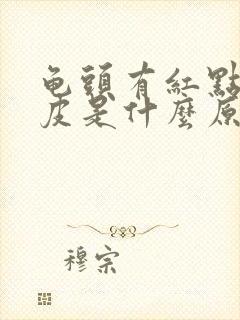 龟頭有紅點
皮是什麼原
穆宗